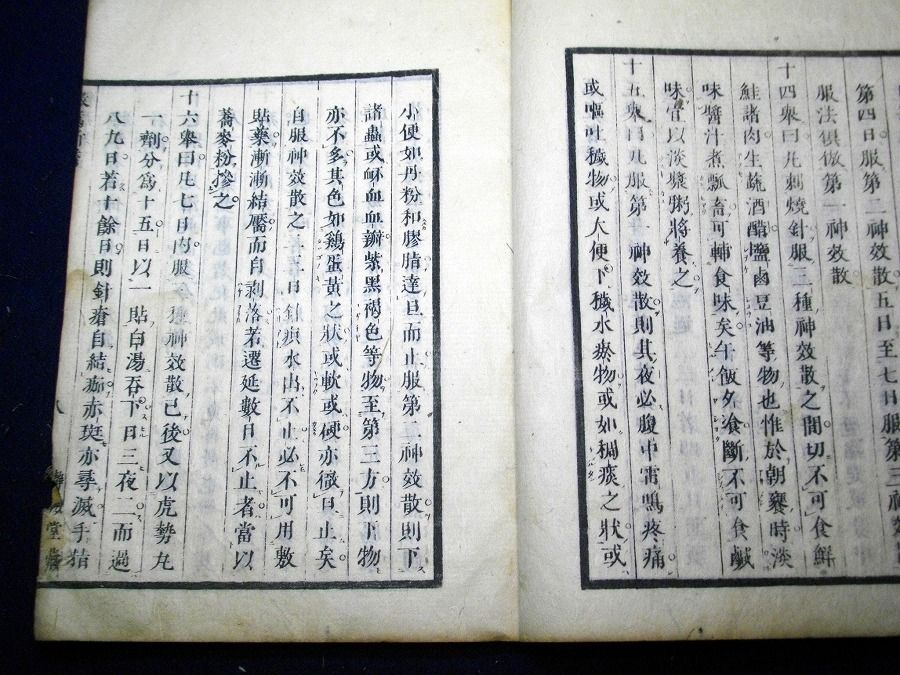 第四日服第二神效散五日至七日服第三神效
服法俱倣第一神效散
十四舉曰凡刺燒針服三種神效散之間切不可食鮮
鮭諸肉生蔬酒醋鹽鹵豆油等物也惟於朝饔時淡
味醬汁煮瓢畜可輔食味矣午飯夕飡斷不可食鹹
味宜以淡漿粥將養之
十五舉曰凡服第一神效散則其夜必腹中雷鳴疼痛
或嘔吐穢物或大便下穢水瘀物或如稠痰之狀或
小便如丹粉和膠脂達旦而止服第二神效散則下
諸蟲或衃血血瓣紫黑褐色等物至第三方則下物
亦不多其色如鷄蛋黃之狀或軟或硬亦微日止矣
自服神效散之二三日針痕水出不止必不可用敷
貼藥漸漸結靨而自剥落若遷延數日不止者當以
蕎麥粉摻之
十六舉曰凡七日内服種神效散已後又以虎勢丸
一劑分爲十五日以一貼白湯吞下日三夜二而過
八九日若十餘日則針瘡自結痂赤斑亦尋滅手猪
八
堂